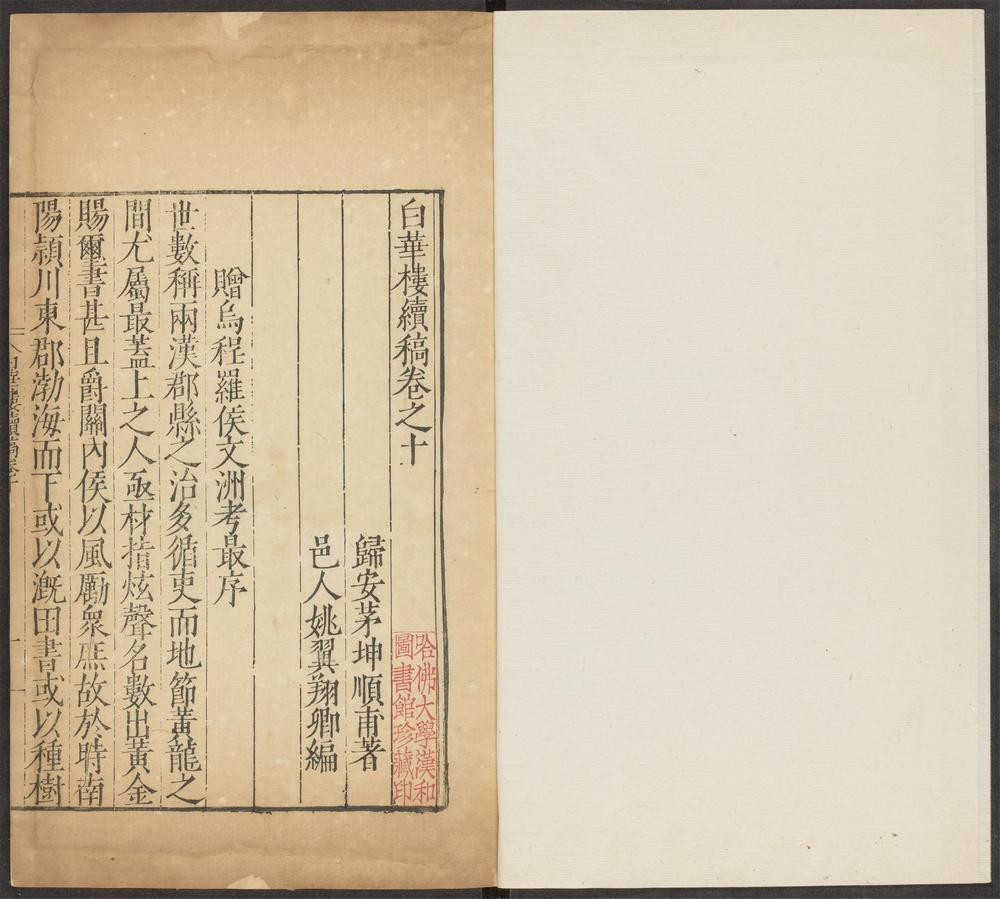 白華樓續稿卷之十
歸安茅坤順甫著
邑人姚翼翔卿編
贈烏程羅侯文洲考最序
世數稱兩漢郡縣之治多循吏而地節黃龍之
間尤屬最蓋上之人亟材指炫聲名數出黃金
賜璽書甚且爵關內侯以風勵衆庶故於時南
陽潁川東郡渤海而下或以漑田書或以種樹
哈佛大學漢和
圖書館珍藏印